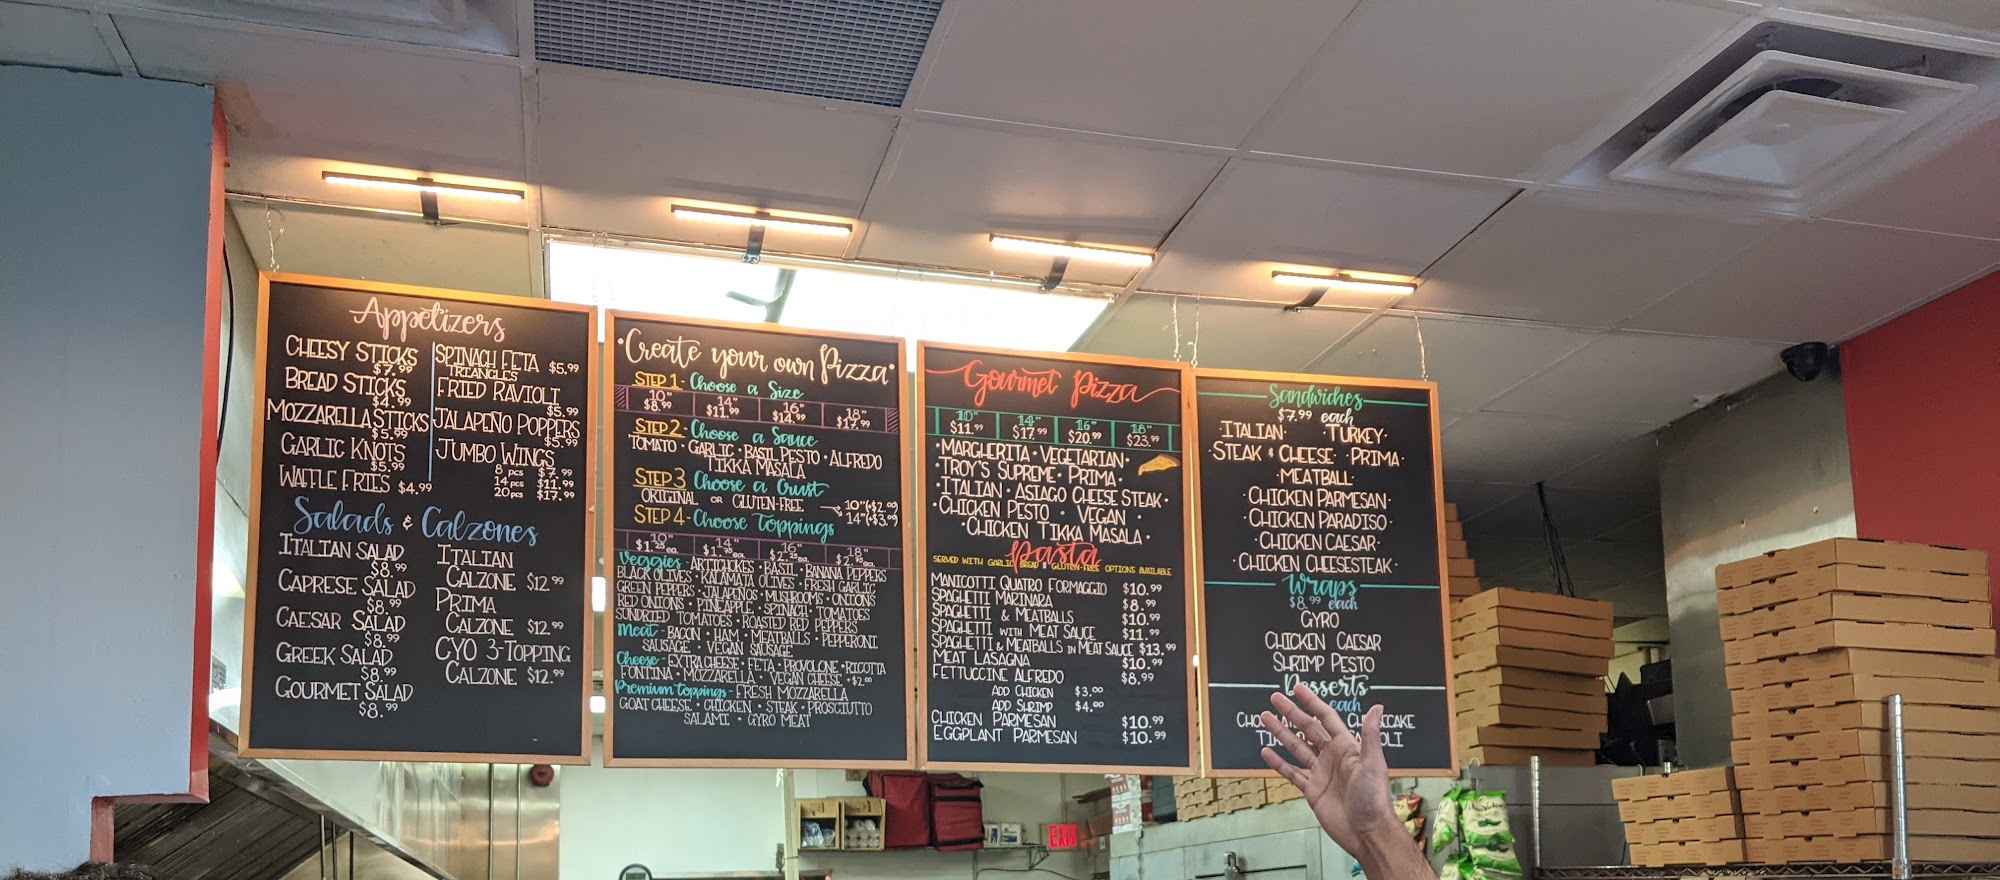 Appetizers
CHEESY STICKS
$7.99
BREAD STICKS
$4.99
MOZZARELLA STICKS
$5.99
GARLIC KNOTS
$5.99
WAFFLE FRIES $4.99
SPINACH FETA $5.99
TRIANGLES
FRIED RAVIOLI
$5.99
JALAPEÑO POPPERS
$5.99
JUMBO WINGS
8 pcs $7.99
14 pcs $11.99
20 pcs $17.99
Salads & Calzones
ITALIAN SALAD
$8.99
CAPRESE SALAD
$8.99
CAESAR SALAD
$8.99
GREEK SALAD
$8.99
GOURMET SALAD
$8.99
ITALIAN
CALZONE $12.99
PRIMA
CALZONE $12.99
CYO 3-TOPPING
CALZONE $12.99
•Create your own Pizza•
STEP 1 - Choose a Size
10" 14" 16" 18"
$8.99 $11.99 $14.99 $17.99
STEP 2 - Choose a Sauce
TOMATO • GARLIC • BASIL PESTO • ALFREDO
TIKKA MASALA
STEP 3 Choose a Crust
ORIGINAL OR GLUTEN-FREE 10"(+$2.00)
14"(+$3.00)
STEP 4 - Choose Toppings
10" 14" 16" 18"
$1.25 ea. $1.75 ea. $2.25 ea. $2.75 ea.
Veggies - ARTICHOKES • BASIL • BANANA PEPPERS
BLACK OLIVES • KALAMATA OLIVES • FRESH GARLIC
GREEN PEPPERS • JALAPEÑOS • MUSHROOMS • ONIONS
RED ONIONS • PINEAPPLE • SPINACH • TOMATOES
SUNDRIED TOMATOES • ROASTED RED PEPPERS
Meat - BACON • HAM • MEATBALLS • PEPPERONI
SAUSAGE • VEGAN SAUSAGE
Cheese - EXTRA CHEESE • FETA • PROVOLONE • RICOTTA
FONTINA • MOZZARELLA • VEGAN CHEESE +$2.00
Premium toppings - FRESH MOZZARELLA
GOAT CHEESE • CHICKEN • STEAK • PROSCIUTTO
SALAMI • GYRO MEAT
Gourmet Pizza
10" 14" 16" 18"
$11.99 $17.99 $20.99 $23.99
•MARGHERITA • VEGETARIAN•
•TROY'S SUPREME • PRIMA•
•ITALIAN • ASIAGO CHEESE STEAK•
•CHICKEN PESTO • VEGAN •
•CHICKEN TIKKA MASALA•
Pasta
SERVED WITH GARLIC BREAD GLUTEN-FREE OPTIONS AVAILABLE
MANICOTTI QUATRO FORMAGGIO $10.99
SPAGHETTI MARINARA $8.99
SPAGHETTI & MEATBALLS $10.99
SPAGHETTI WITH MEAT SAUCE $11.99
SPAGHETTI & MEATBALLS IN MEAT SAUCE $13.99
MEAT LASAGNA $10.99
FETTUCCINE ALFREDO $8.99
ADD CHICKEN $3.00
ADD SHRIMP $4.00
CHICKEN PARMESAN $10.99
EGGPLANT PARMESAN $10.99
Sandwiches
$7.99 each
ITALIAN• TURKEY•
STEAK & CHEESE • PRIMA•
•MEATBALL•
•CHICKEN PARMESAN•
•CHICKEN PARADISO•
•CHICKEN CAESAR•
•CHICKEN CHEESESTEAK•
Wraps
$8.99 each
GYRO
CHICKEN CAESAR
SHRIMP PESTO
Desserts
each
EXIT